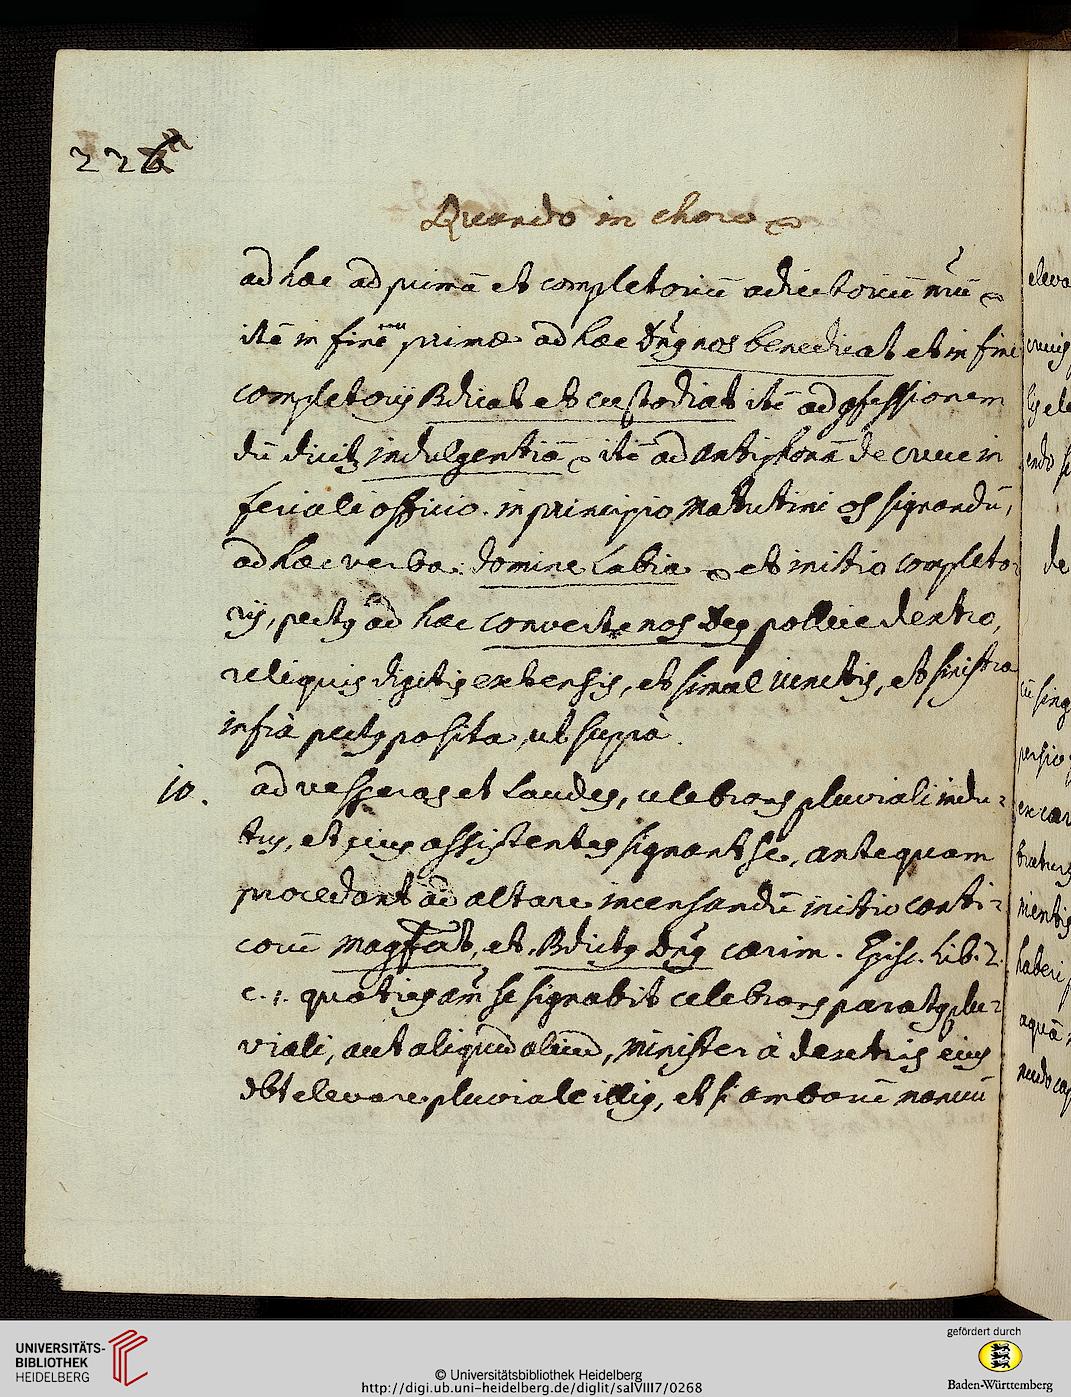 226
Quando in choro
ad hæc ad primā et completoriū adiutoriū nr̄ū
itē in fine primæ ad hæc Dn̄s nos benedicat et in fine
completorij Bdicat et custodiat itē ad 9fessionem
dū dicitʒ indulgentiā itē ad antiphonā de cruce in
feriali officio. in principio matutini os signandū,
ad hæc verba: domine labia et initio completo-
rij, pect9 ad hæc converte nos De9 pollice dextro,
reliquis digitis extensis, et simul iunctis, et sinistra
infrà pect9 posita, ut suprà.
10. ad vesperas et Laudes, celebrans pluviali indu-
tus, et eius assistentes signant se, antequam
procedant ad altare incensandū initio canti-
corū Magfcat, et, Bdict9 Dn̄s cærim. Episc. Lib. 2.
c. 1. quoties am̄ se signabit celebrans parat9 plu-
viali, aut aliquod aliud, minister à dextris eius
dbt elevare pluviale illis, et si ambarū manuū
eleva
de
UNIVERSITÄTS-
BIBLIOTHEK
HEIDELBERG
© Universitätsbibliothek Heidelberg
http://digi.ub.uni-heidelberg.de/diglit/salVIII7/0268
gefördert durch
Baden-Württemberg